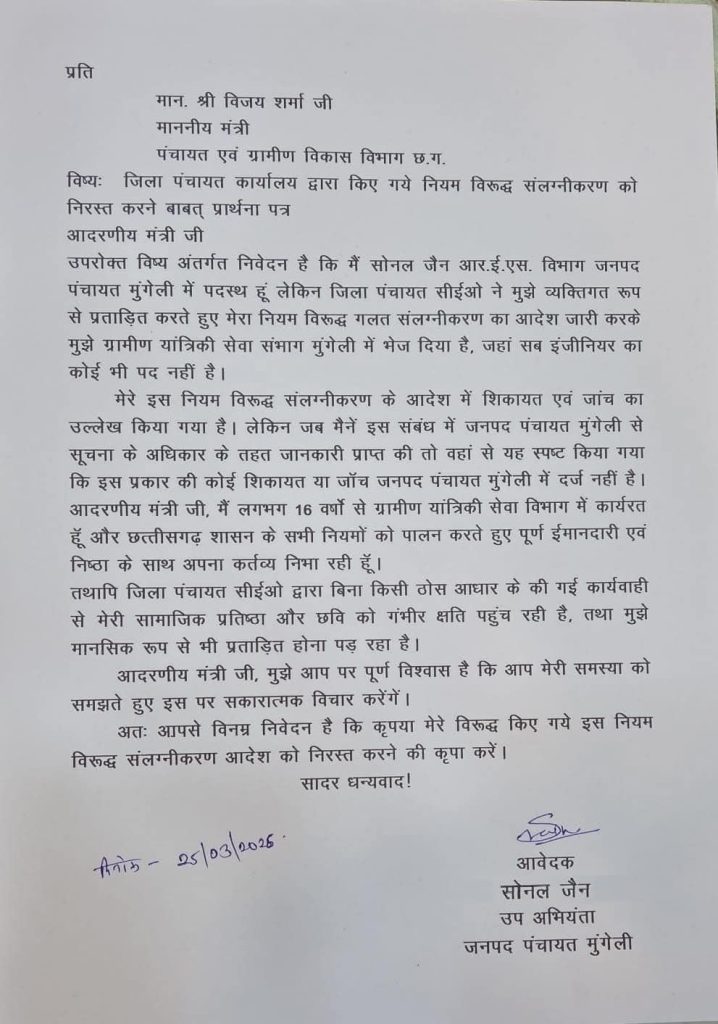 प्रति
मान. श्री विजय शर्मा जी
माननीय मंत्री
पंचायत एवं ग्रामीण विकास विभाग छ.ग.
विष्यः जिला पंचायत कार्यालय द्वारा किए गये नियम विरूद्ध संलग्नीकरण को
निरस्त करने बाबत् प्रार्थना पत्र
आदरणीय मंत्री जी
उपरोक्त विष्य अंतर्गत निवेदन है कि मैं सोनल जैन आर.ई.एस. विभाग जनपद
पंचायत मुंगेली में पदस्थ हूं लेकिन जिला पंचायत सीईओ ने मुझे व्यक्तिगत रूप
से प्रताड़ित करते हुए मेरा नियम विरूद्ध गलत संलग्नीकरण का आदेश जारी करके
मुझे ग्रामीण यांत्रिकी सेवा संभाग मुंगेली में भेज दिया है, जहां सब इंजीनियर का
कोई भी पद नहीं है।
मेरे इस नियम विरूद्ध संलग्नीकरण के आदेश में शिकायत एवं जांच का
उल्लेख किया गया है। लेकिन जब मैनें इस संबंध में जनपद पंचायत मुंगेली से
सूचना के अधिकार के तहत जानकारी प्राप्त की तो वहां से यह स्पष्ट किया गया
कि इस प्रकार की कोई शिकायत या जॉच जनपद पंचायत मुंगेली में दर्ज नहीं है।
आदरणीय मंत्री जी, मैं लगभग 16 वर्षो से ग्रामीण यांत्रिकी सेवा विभाग में कार्यरत
हूॅं और छत्तीसगढ़ शासन के सभी नियमों को पालन करते हुए पूर्ण ईमानदारी एवं
निष्ठा के साथ अपना कर्तव्य निभा रही हूॅं।
तथापि जिला पंचायत सीईओ द्वारा बिना किसी ठोस आधार के की गई कार्यवाही
से मेरी सामाजिक प्रतिष्ठा और छवि को गंभीर क्षति पहुंच रही है, तथा मुझे
मानसिक रूप से भी प्रताड़ित होना पड़ रहा है।
आदरणीय मंत्री जी, मुझे आप पर पूर्ण विश्वास है कि आप मेरी समस्या को
समझते हुए इस पर सकारात्मक विचार करेंगें।
अतः आपसे विनम्र निवेदन है कि कृपया मेरे विरूद्ध किए गये इस नियम
विरूद्ध संलग्नीकरण आदेश को निरस्त करने की कृपा करें।
सादर धन्यवाद!
दिनांक - 25/03/2025.
आवेदक
सोनल जैन
उप अभियंता
जनपद पंचायत मुंगेली